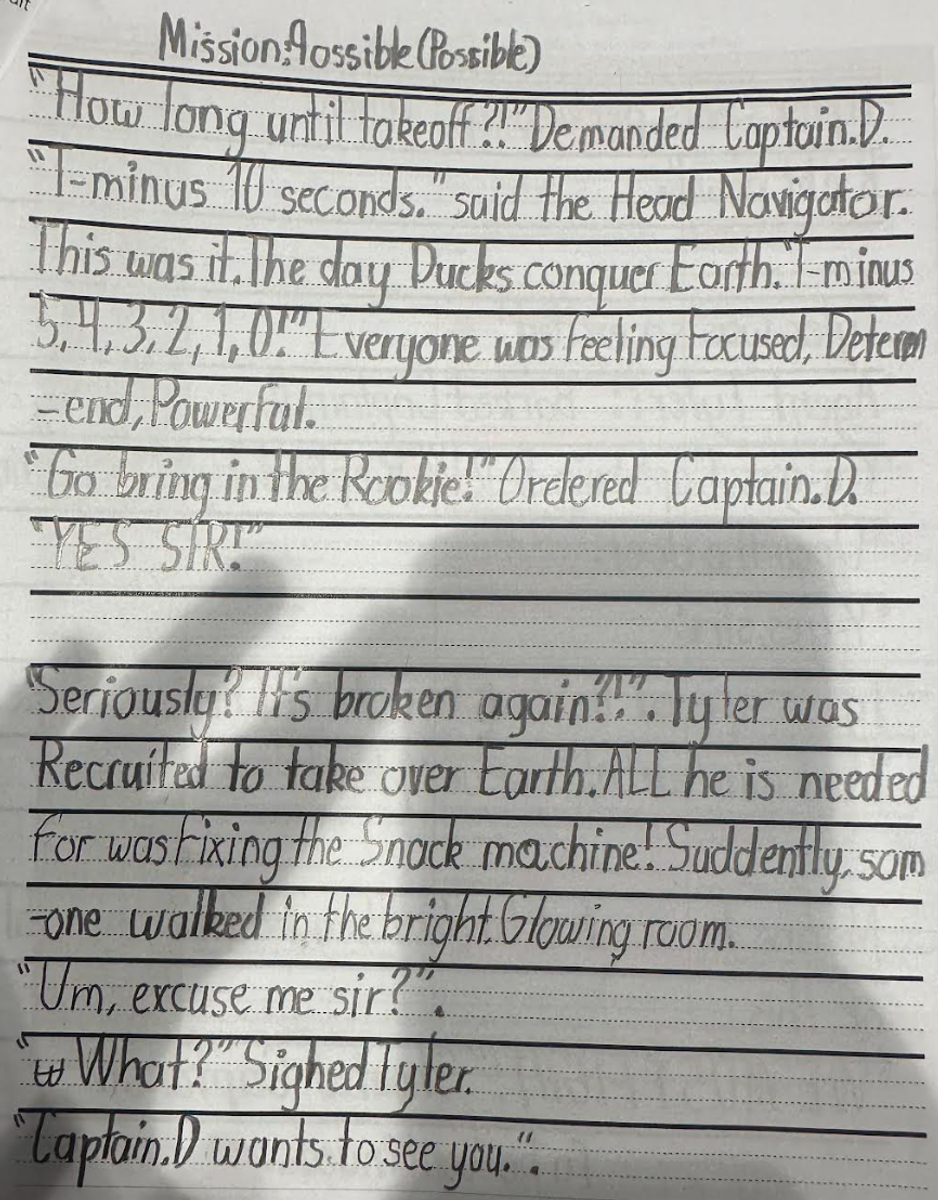 Mission:Possible(Possible)
"How long until takeoff?!" Demanded Captain.D.
"T-minus 10 seconds." said the Head Navigator.
This was it. The day Ducks conquer Earth. "T-minus
5, 4, 3, 2, 1, 0!" Everyone was feeling Focused, Determ
-end, Powerful.
"Go bring in the Rookie!" Ordered Captain.D.
"YES SIR!"
"Seriously? It's broken again?!". Tyler was
Recruited to take over Earth. ALL he is needed
for was fixing the Snack machine! Suddently, som
-one walked in the bright. Glowing room.
"Um, excuse me sir?".
"What?" Sighed Tyler.
"Captain.D wants to see you.".